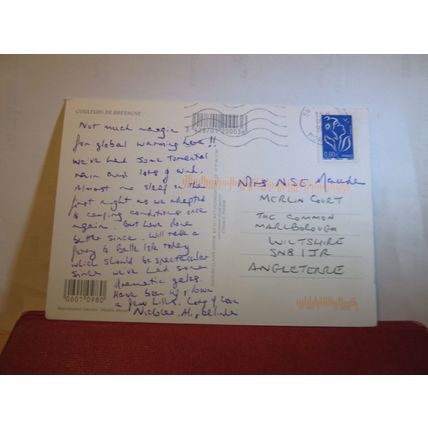 COULEURS DE BRETAGNE
Not much
for global warming here!!
We've had some torrential
rain and lots of wind.
Almost no sleep in the
first night as we adapted
to camping conditions once
again. But have done
better since. Will take a
ferry to Belle Isle today
which should be spectacular
since we've had some
dramatic gales.
Have been up & down
a few hills. Lots of love
Nicholas, Ali,
0601 0980
0,60€
Mrs N.S.E. Maude
MERLIN COURT
THE COMMON
MARLBOROUGH
WILTSHIRE
SN8 1JR
ANGLETERRE